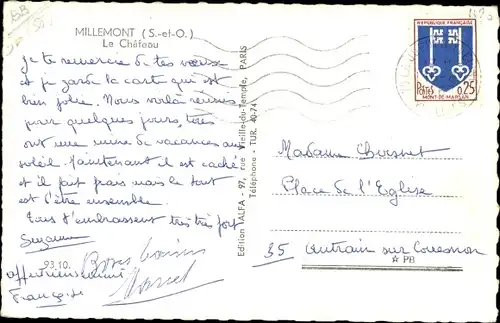 MILLEMONT (S.-et-O.)
Le Château
Je te remercie de tes vœux
et je garde la carte qui est
bien jolie. Nous voilà réunis
pour quelques jours, tous
ont une mine de vacances au
soleil. Maintenant il est caché
et il fait frais mais le tout
est d'être ensemble.
Tous t'embrassent très très fort
Suzanne
93.10.
Marcel
Françoise
Edition "ALFA" - 97, rue Vieille-du-Temple, PARIS
Téléphone - TUR. 40-74
REPUBLIQUE FRANÇAISE
POSTES
0,25
MONT-DE-MARSAN
Madame
Place de l'Eglise
35 Antrain sur Couesnon
☆ PB